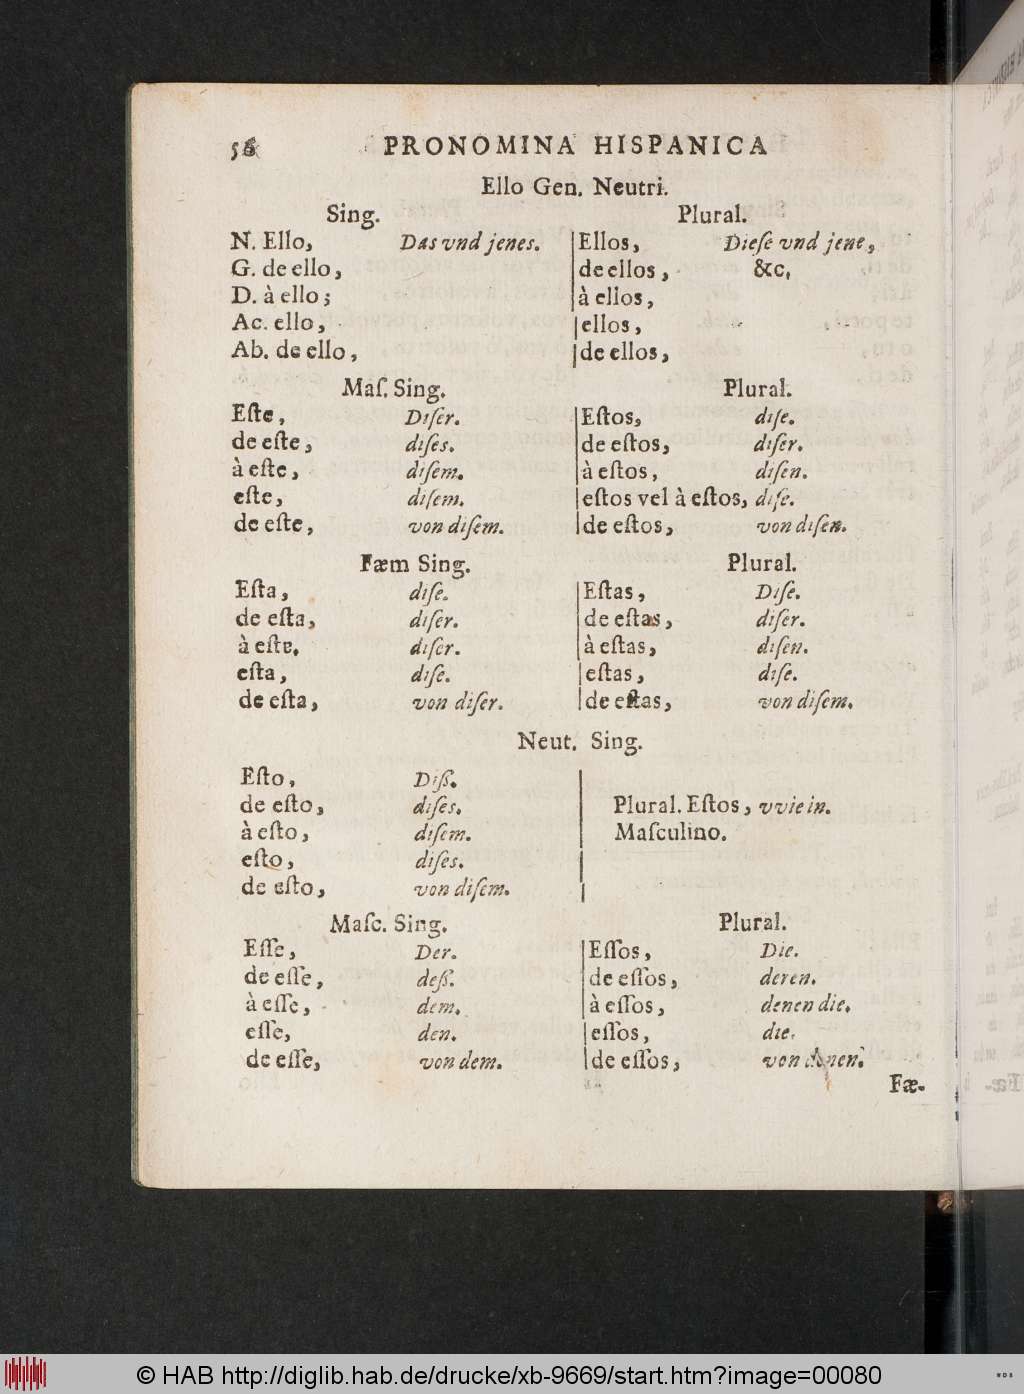 56 PRONOMINA HISPANICA
Ello Gen. Neutri.
Sing. Plural.
N. Ello, Das vnd jenes. Ellos, Dieſe vnd jene,
G. de ello, de ellos, &c,
D. à ello; à ellos,
Ac. ello, ellos,
Ab. de ello, de ellos,
Maſ. Sing. Plural.
Eſte, Diſer. Eſtos, diſe.
de eſte, diſes. de eſtos, diſer.
à eſte, diſem. à eſtos, diſen.
eſte, diſem. eſtos vel à eſtos, diſe.
de eſte, von diſem. de eſtos, von diſen.
Fæm Sing. Plural.
Eſta, diſe. Eſtas, Diſe.
de eſta, diſer. de eſtas, diſer.
à eſte. diſer. à eſtas, diſen.
eſta, diſe. eſtas, diſe.
de eſta, von diſer. de eſtas, von diſem.
Neut. Sing.
Eſto, Diß.
de eſto, diſes. Plural. Eſtos, vvie in.
à eſto, diſem. Maſculino.
eſto, diſes.
de eſto, von diſem.
Maſc. Sing. Plural.
Eſſe, Der. Eſſos, Die.
de eſſe, deß. de eſſos, deren.
à eſſe, dem. à eſſos, denen die.
eſſe, den. eſſos, die.
de eſſe, von dem. de eſſos, von denen.
Fæ-
© HAB http://diglib.hab.de/drucke/xb-9669/start.htm?image=00080